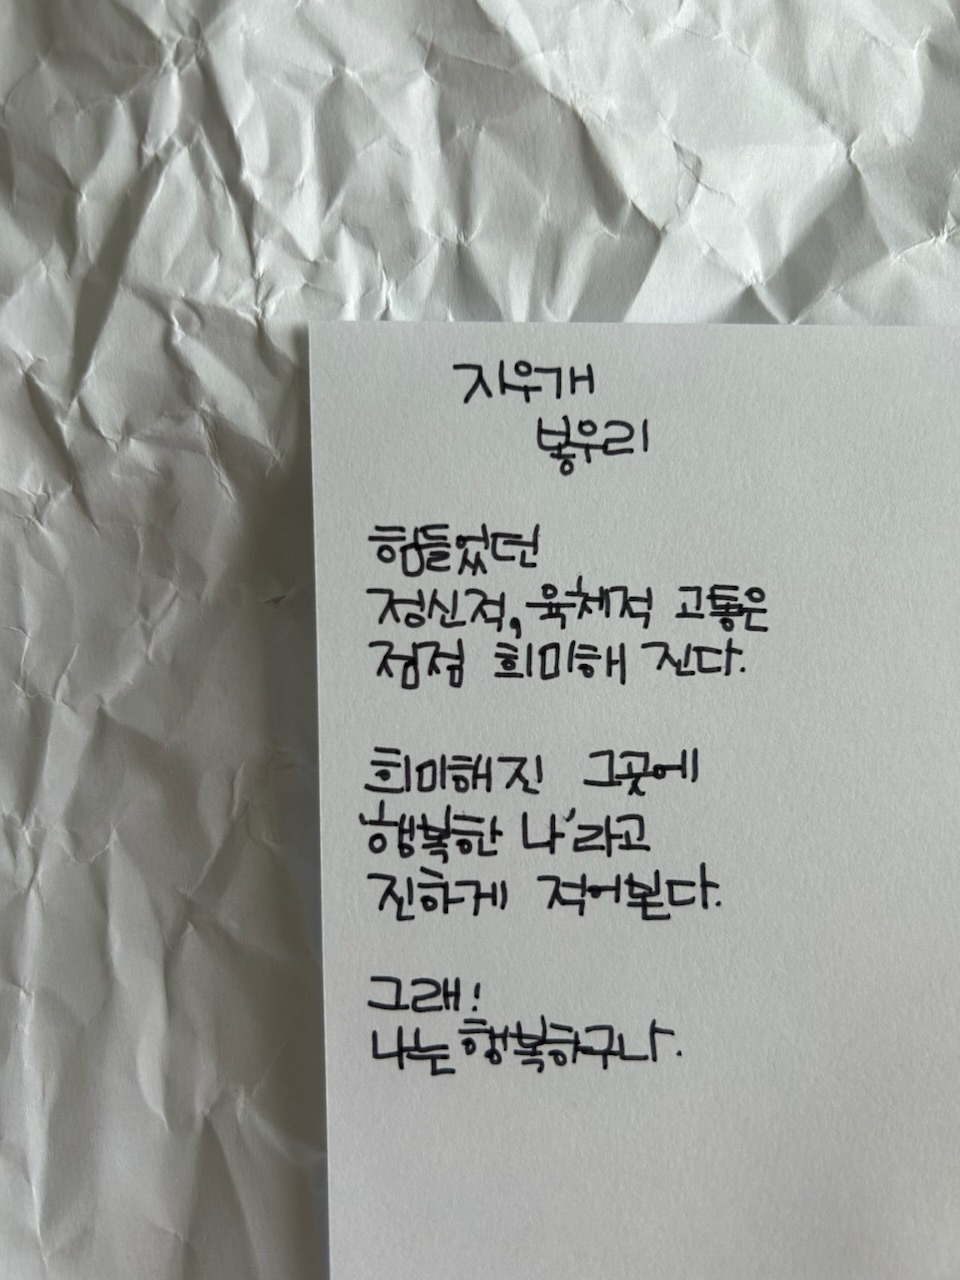 지우개
봉우리
힘들었던
정신적, 육체적 고통은
점점 희미해 진다.
희미해진 그곳에
'행복한 나'라고
진하게 적어본다.
그래!
나는 행복하구나.